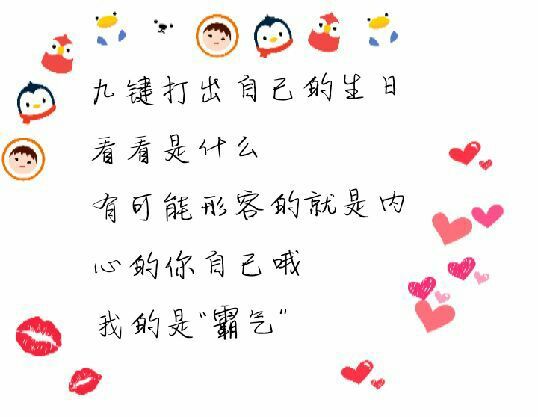 九键打出自己的生日
看看是什么
有可能形容的就是内
心的你自己哦
我的是“霸气”